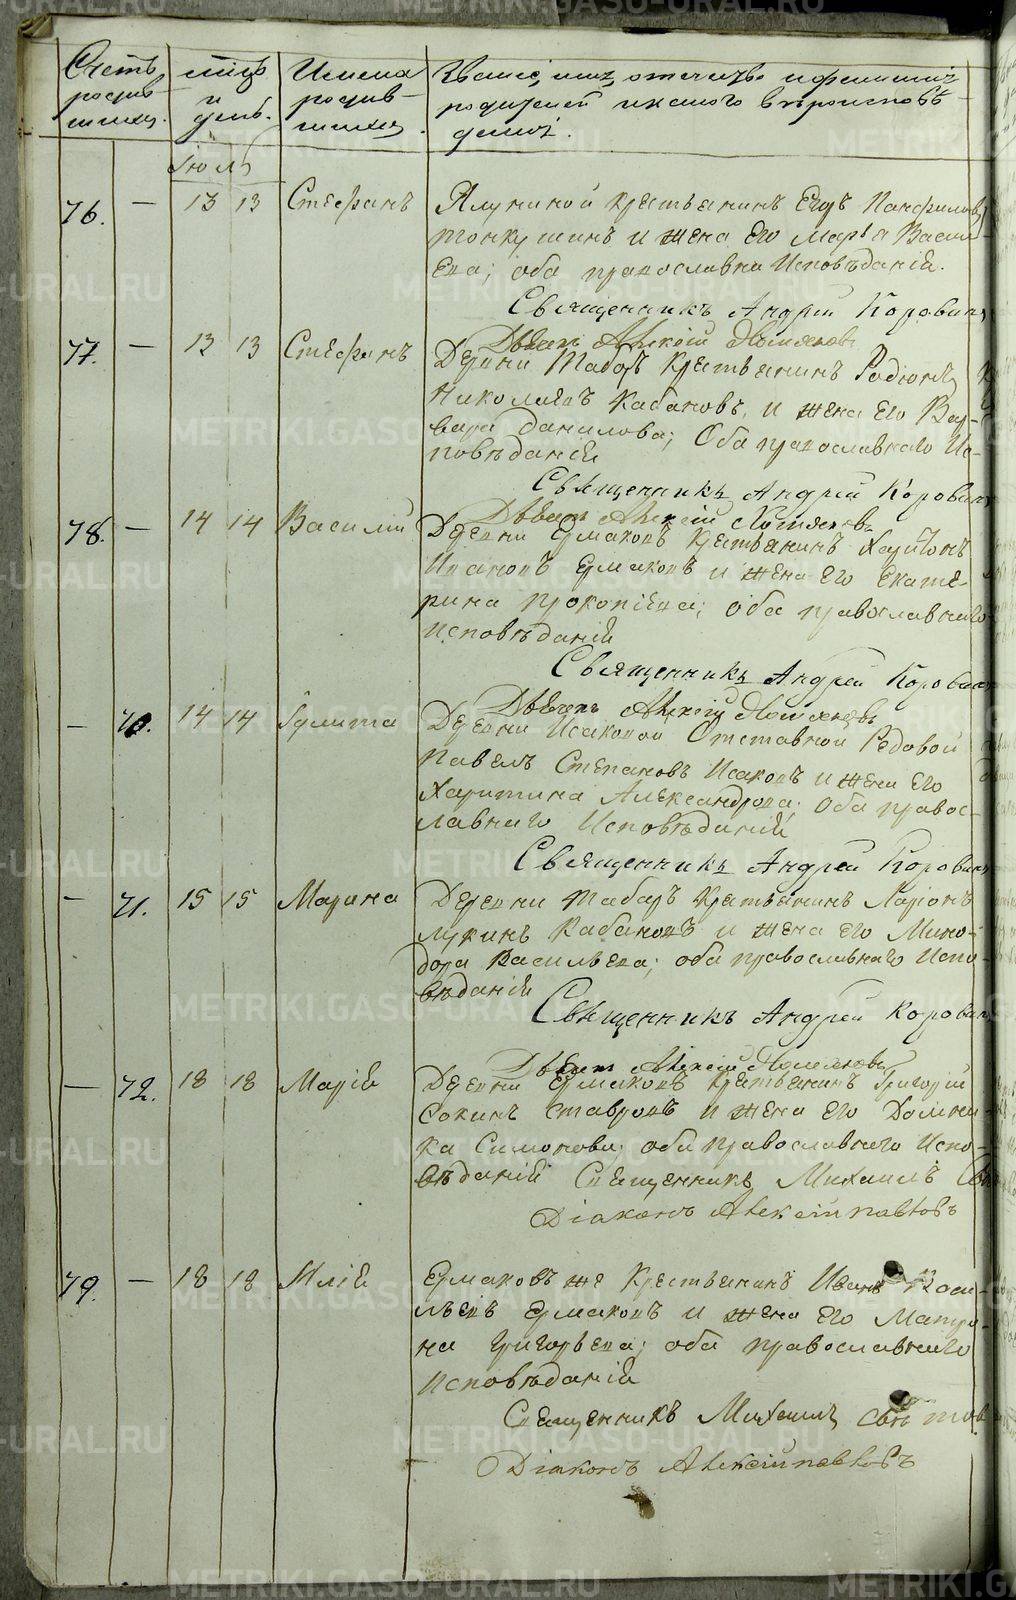 Счетъ родив-шихся.
мѣсяцъ и день.
Имена родив-шихся.
Званіе, имя, отечество и фамилія
родителей и какого вѣроисповѣ-
данія.
Іюль
76. — 13 13 Стефанъ
крестьянинъ Егоръ Панфиловъ
и жена Его Марѳа Васил-
Ева; оба православна Исповѣданій.
Священникъ Андрей Коровинъ
77. — 13 13 Стефанъ
Діаконъ Алексій
Деревни Табаръ Крестьянинъ Родіонъ
Николаевъ Кабановъ, и жена Его Вар-
вара Данилова; Оба православнаго Ис-
повѣданій
Священникъ Андрей Коровинъ
78. — 14 14 Василій
Діаконъ Алексій
Деревни Ермаковъ Крестьянинъ Харитонъ
Ивановъ Ермаковъ и жена Его Екате-
рина Прокопіева; оба православнаго
исповѣданій
Священникъ Андрей Коровинъ
— 70. 14 14 Іулита
Діаконъ Алексій
Деревни Исаковой Отставной Редовой
Павелъ Степановъ Исаковъ и жена Его
Харитина Александрова; Оба правос-
лавнаго Исповѣданій
Священникъ Андрей Коровинъ
— 71. 15 15 Марина
Деревни Табаръ Крестьянинъ Ларіонъ
Лукинъ Кабановъ и жена Его Мино-
дора Васильева; оба православнаго Испо-
вѣданій
Священникъ Андрей Коровинъ
Діаконъ Алексій
— 72. 18 18 Марія
Деревни Ермаковъ Крестьянинъ Григорій
Сокинъ Ставровъ и жена Его Домни-
ка Симонова; оба православнаго Испо-
вѣданій Священникъ Михаилъ
Діаконъ Алексій Павловъ
79. — 18 18 Илій
Ермаковъ же Крестьянинъ Иванъ Васи-
льевъ Ермаковъ и жена Его Матро-
на Григорьева; оба православнаго
Исповѣданій
Священникъ Михаилъ
Діаконъ Алексій Павловъ
METRIKI.GASO-URAL.RU